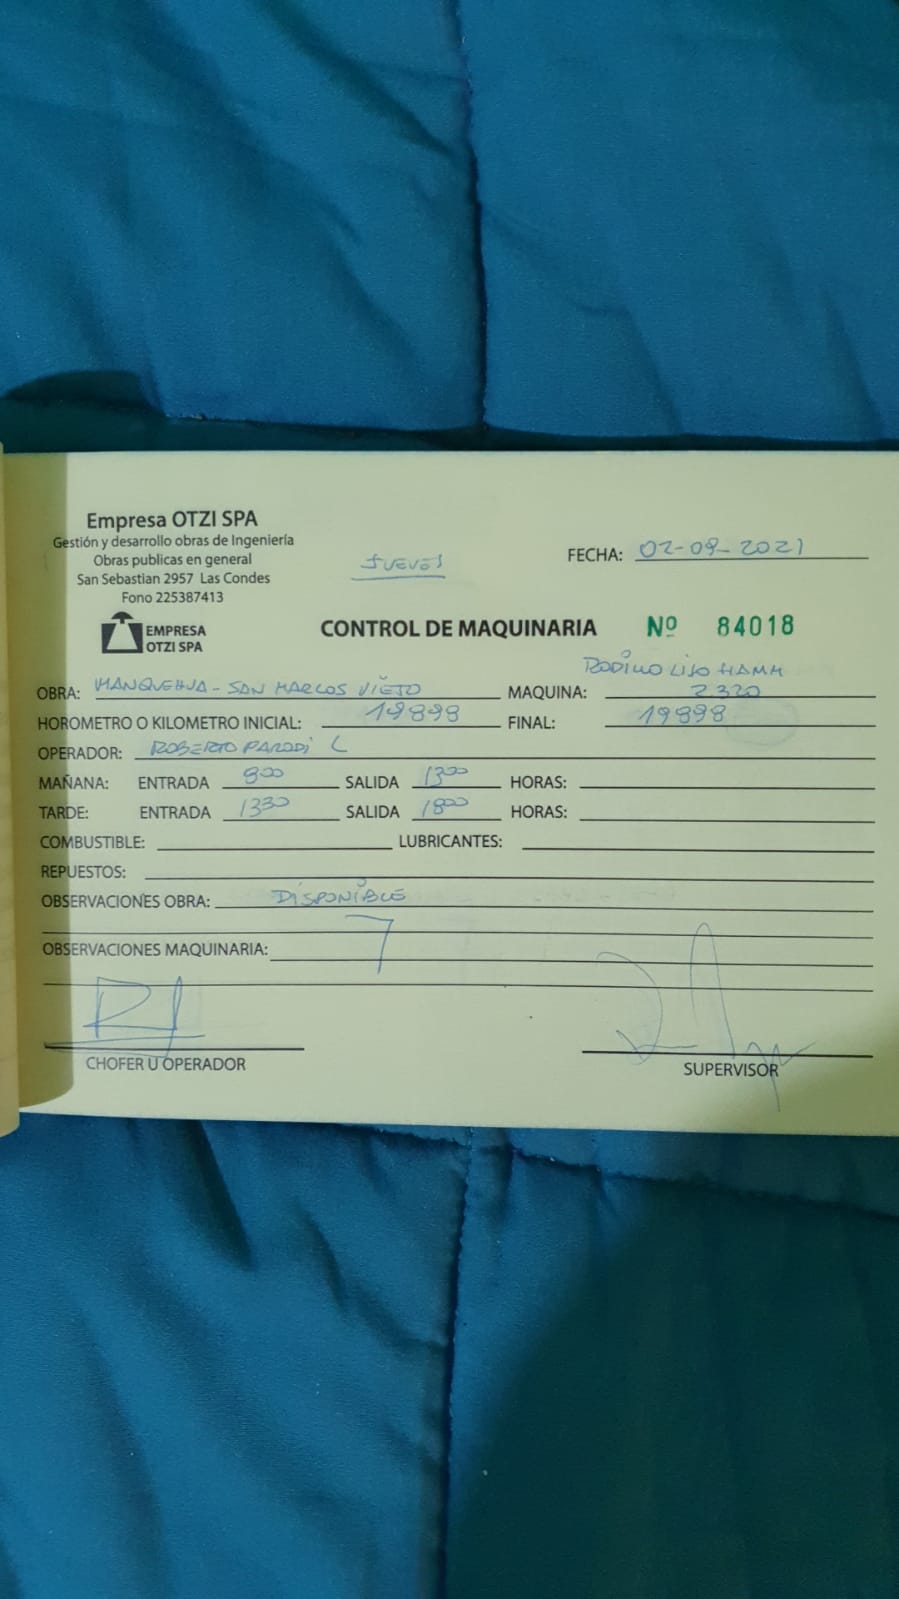 Empresa OTZI SPA
Gestión y desarrollo obras de Ingeniería
Obras publicas en general
San Sebastian 2957 Las Condes
Fono 225387413
JUEVES
FECHA: 02-09-2021
EMPRESA
OTZI SPA
CONTROL DE MAQUINARIA Nº 84018
RODILLO LISO HAMM
OBRA: MANQUEHUA - SAN MARCOS VIEJO MAQUINA: 2320
HOROMETRO O KILOMETRO INICIAL: 19898 FINAL: 19898
OPERADOR: ROBERTO PARODI C
MAÑANA: ENTRADA 800 SALIDA 1300 HORAS:
TARDE: ENTRADA 1330 SALIDA 1800 HORAS:
COMBUSTIBLE: LUBRICANTES:
REPUESTOS:
OBSERVACIONES OBRA: DISPONIBLE
OBSERVACIONES MAQUINARIA:
CHOFER U OPERADOR
SUPERVISOR